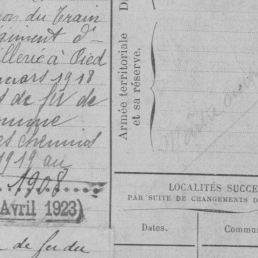 on du Train
giment d'
illerie à Pied
mars 1918
s de fer de
1919 au
1908
Avril 1923)
de fer du
Armée territoriale
et sa réserve.
LOCALITÉS SUCCE
PAR SUITE DE CHANGEMENTS D
Dates.
Commu